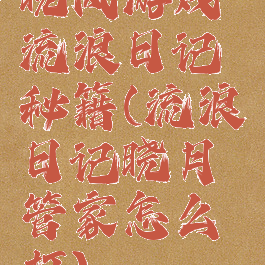 流浪日记
秘籍(流浪
日记晓月
管家怎么